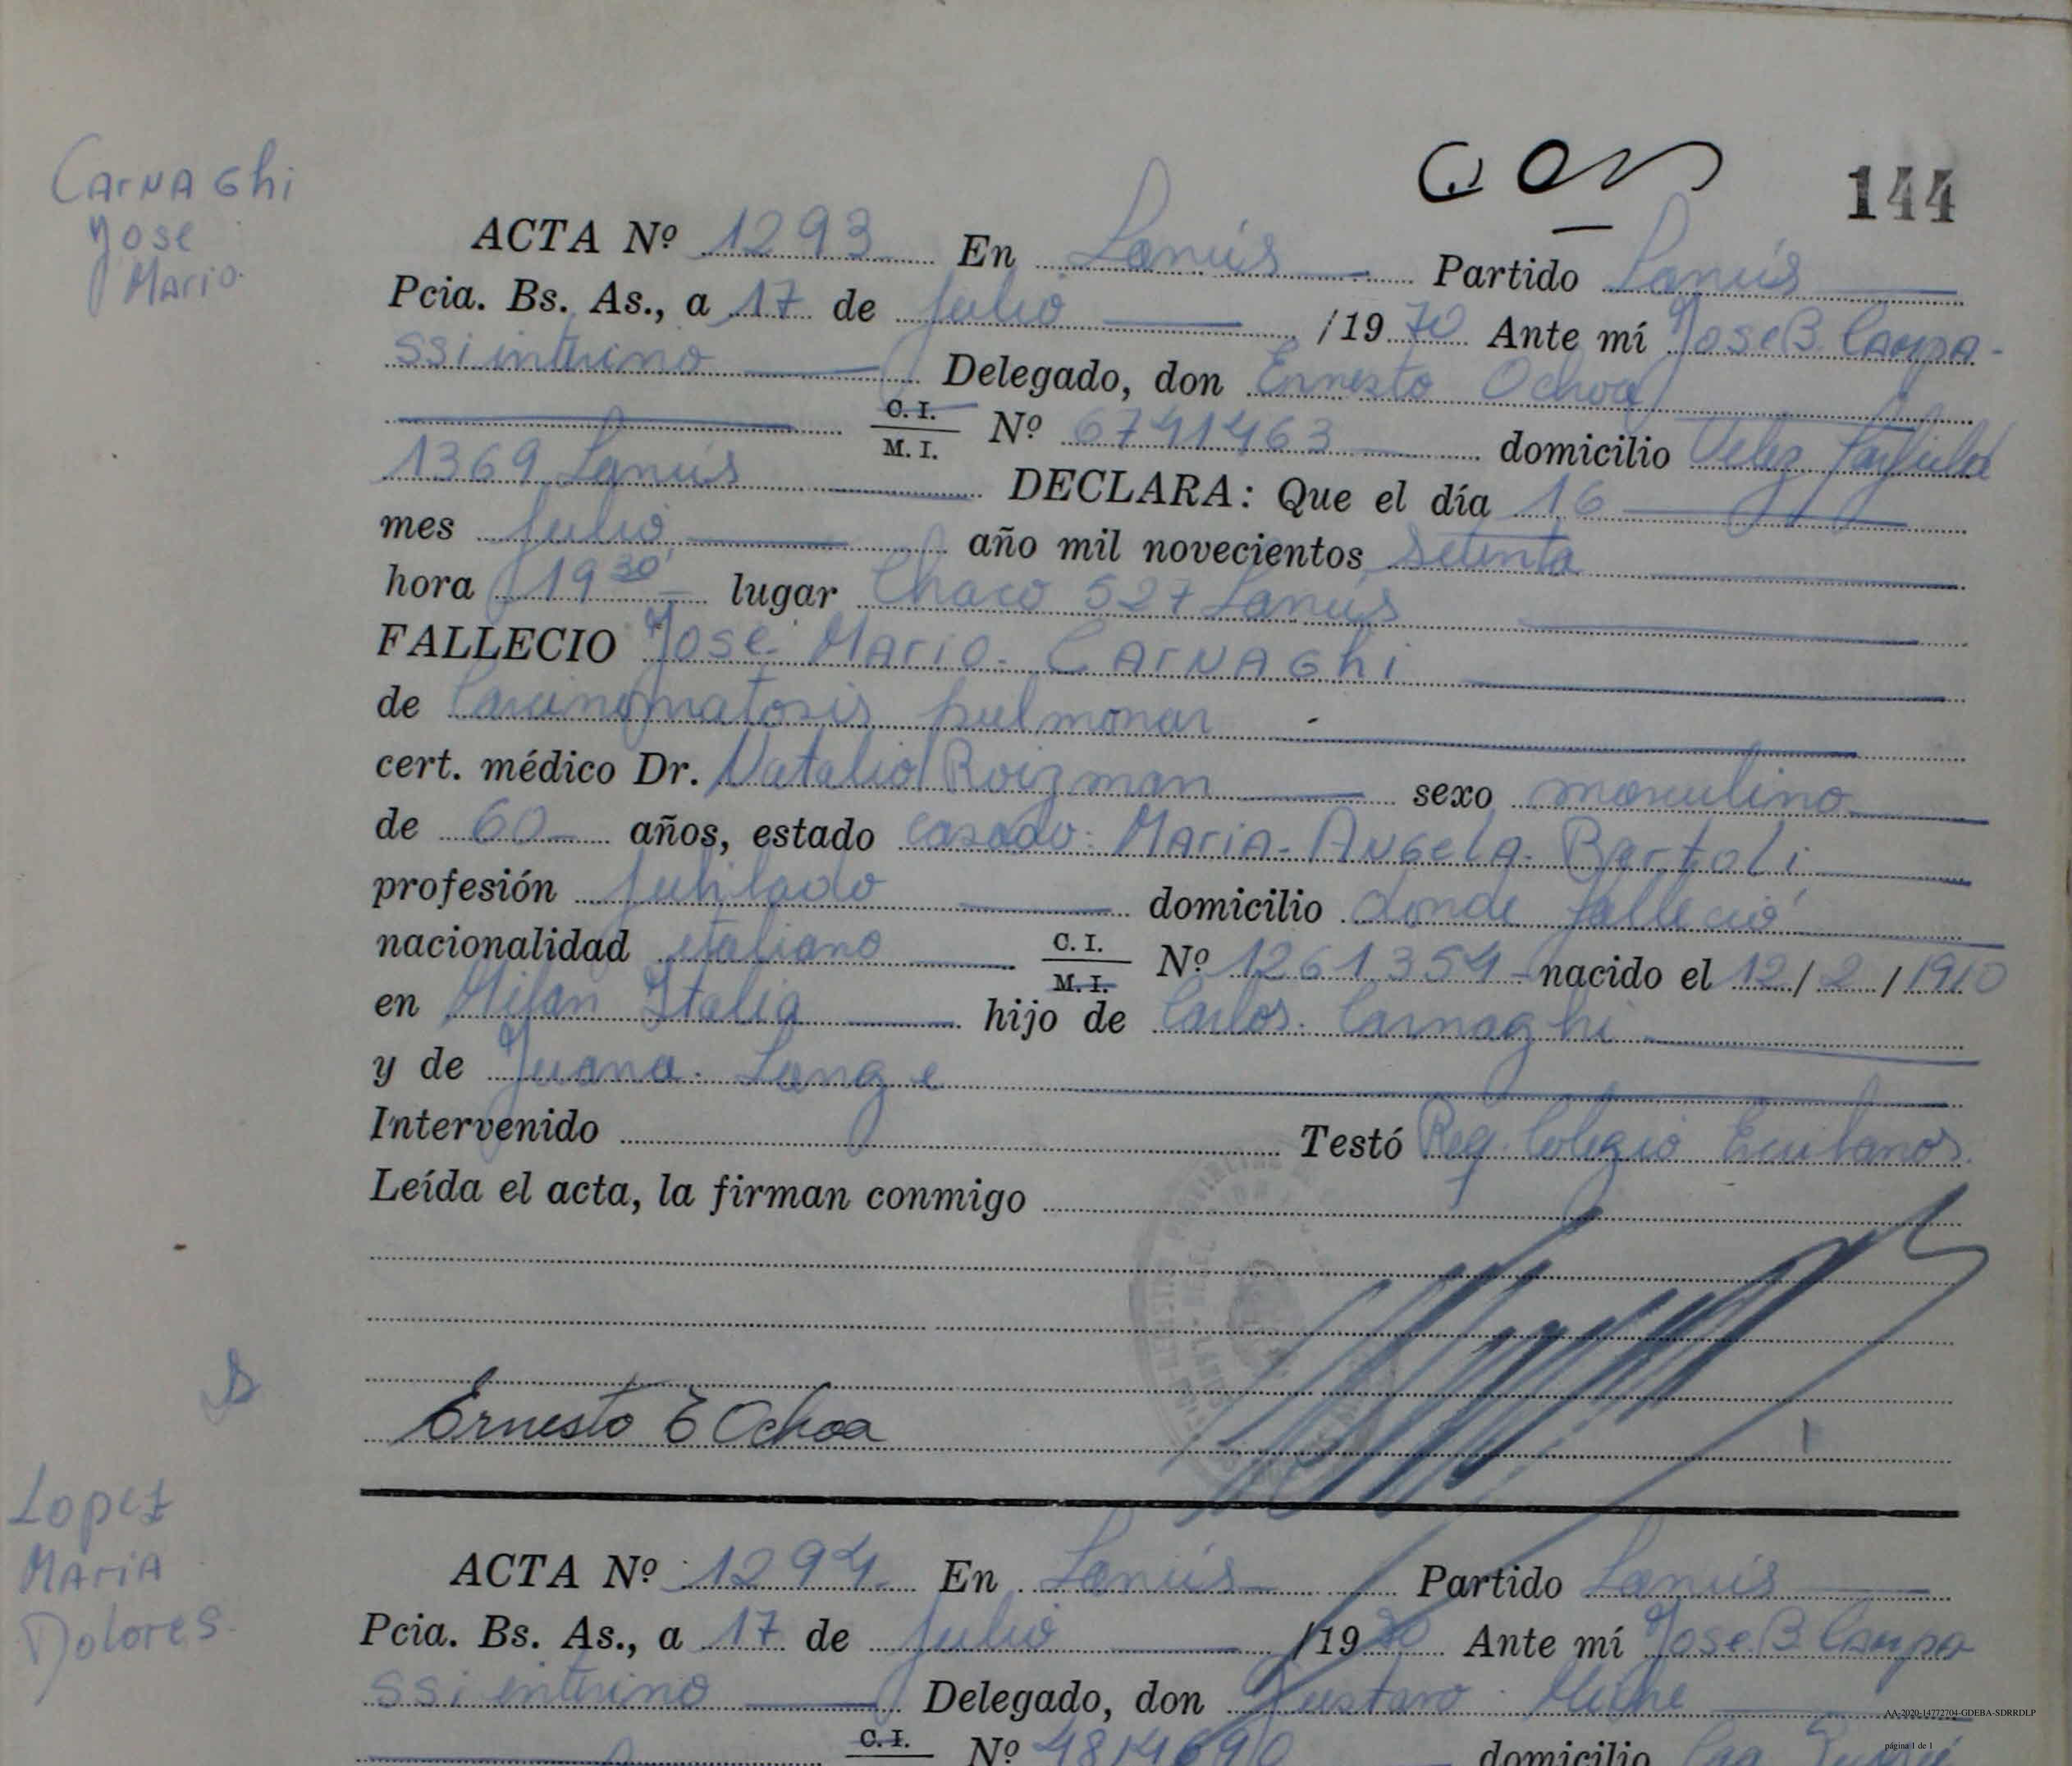 144
Carnaghi
Jose
Mario
ACTA Nº 1293 En Lanús Partido Lanús
Pcia. Bs. As., a 17 de Julio /1970 Ante mí Jose B. Campa-
ssi interino Delegado, don Ernesto Ochoa
C. I. M. I. Nº 6741463 domicilio Velez Sarfield
1369 Lanús DECLARA: Que el día 16
mes Julio año mil novecientos Setenta
hora 19 30' lugar Chaco 527 Lanus
FALLECIO Jose Mario Carnaghi
de Carcinomatosis pulmonar
cert. médico Dr. Natalio Roizman sexo masculino
de 60 años, estado casado: Maria Angela Bartoli
profesión Jubilado domicilio donde falleció
nacionalidad italiano C. I. M. I. Nº 1261354 nacido el 12/2/1910
en Milan Italia hijo de Carlos Carnaghi
y de Juana Lange
Intervenido Testó Reg. Colegio Escribanos
Leída el acta, la firman conmigo
Ernesto E Ochoa
Lopez
Maria
Dolores
ACTA Nº 1294 En Lanús Partido Lanús
Pcia. Bs. As., a 17 de Julio /1970 Ante mí Jose B. Campa
ssi interino Delegado, don Gustavo
C. I. Nº 4814690 domicilio
AA-2020-14772704-GDEBA-SDRRDLP
página 1 de 1